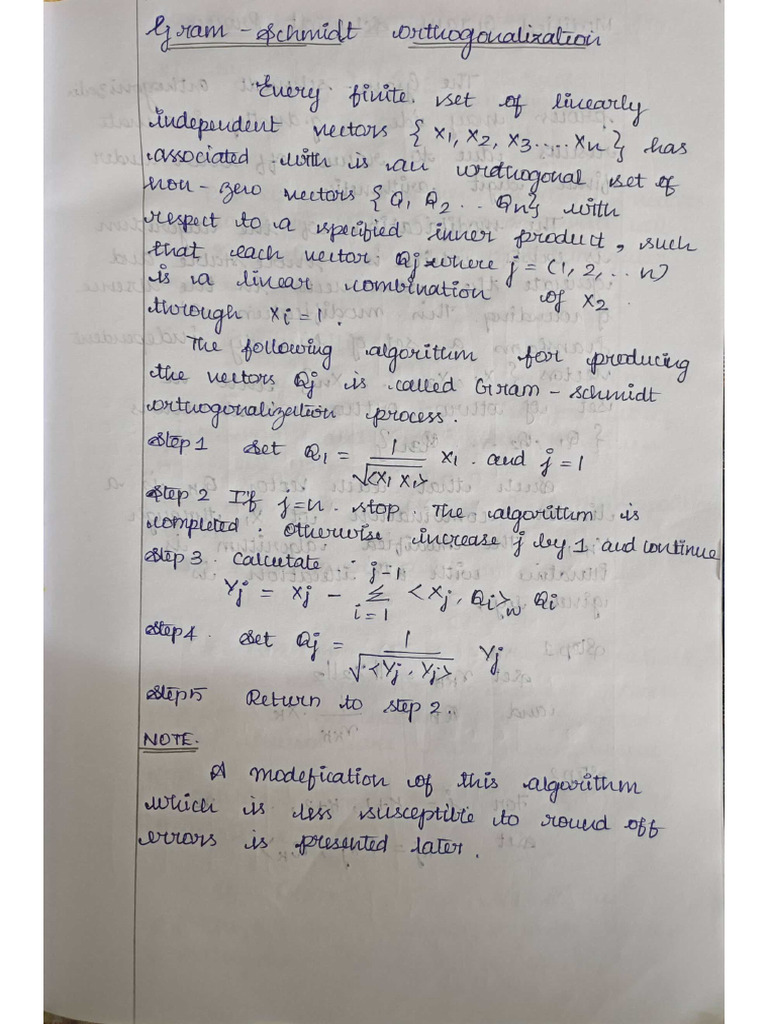 Gram - Schmidt orthogonalization
Every finite set of linearly
independent vectors { x1, x2, x3 .... xn } has
associated with is an orthogonal set of
non-zero vectors { Q1 Q2 .. Qn} with
respect to a specified inner product, such
that each vector Qj where j = (1, 2, .. n)
is a linear combination of x2
through xi = 1.
The following algorithm for producing
the vectors Qj is called Gram - schmidt
orthogonalization process.
Step 1 Set Q1 = 1/√<x1 x1> x1 . and j = 1
Step 2 If j=n . stop . The algorithm is
completed . otherwise increase j by 1 and continue
Step 3 . Calculate
Yj = xj - j-1 Σ i=1 <xj, Qi>w Qi
Step 4 . Set Qj = 1/√<Yj, Yj> Yj
Step 5 Return to step 2.
NOTE.
A modefication of this algorithm
which is less susceptible to round off
errors is presented later.